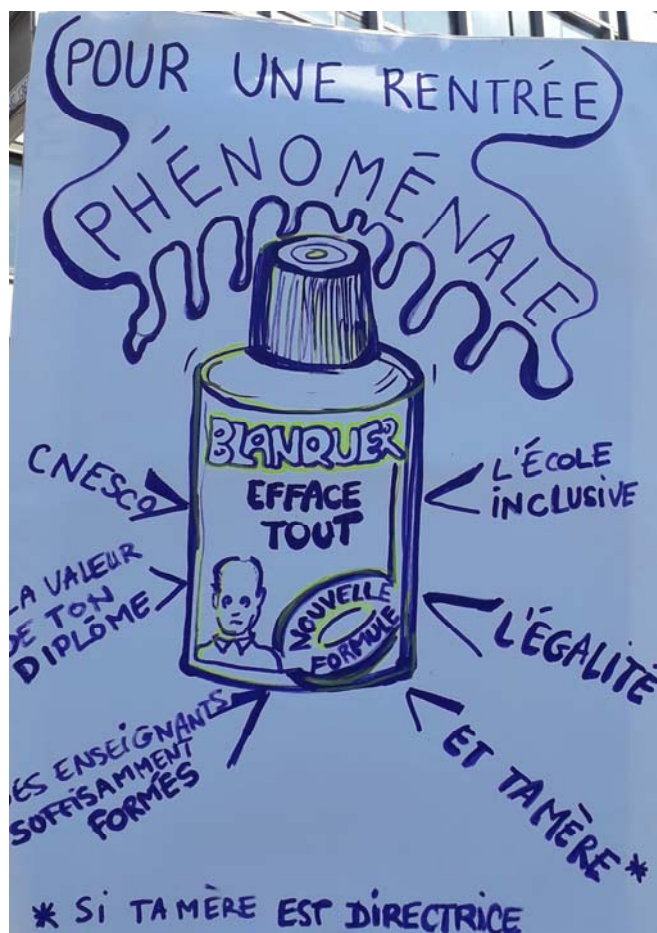 POUR UNE RENTRÉE
PHÉNOMÉNALE
BLANQUER
EFFACE
TOUT
NOUVELLE
FORMULE
CNESCO
LA VALEUR
DE TON
DIPLÔME
DES ENSEIGNANTS
SUFFISAMMENT
FORMÉS
L'ÉCOLE
INCLUSIVE
L'ÉGALITÉ
ET TA MÈRE *
* SI TA MÈRE EST DIRECTRICE